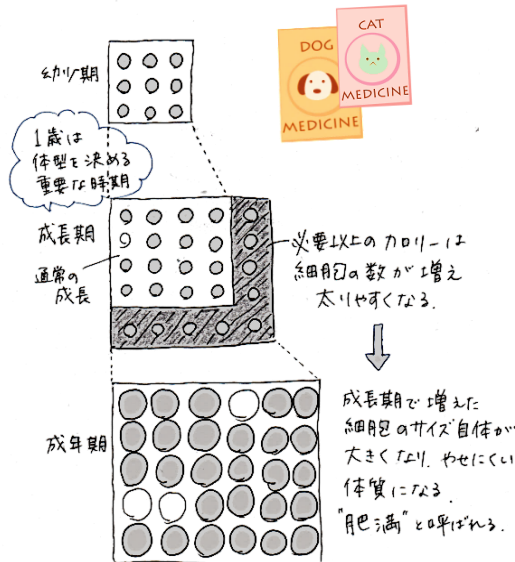 DOG
MEDICINE
CAT
MEDICINE
幼少期
1歳は
体型を決める
重要な時期
成長期
通常の
成長
必要以上のカロリーは
細胞の数が増え
太りやすくなる.
成年期
成長期で増えた
細胞のサイズ自体が
大きくなり、やせにくい
体質になる.
"肥満"と呼ばれる.